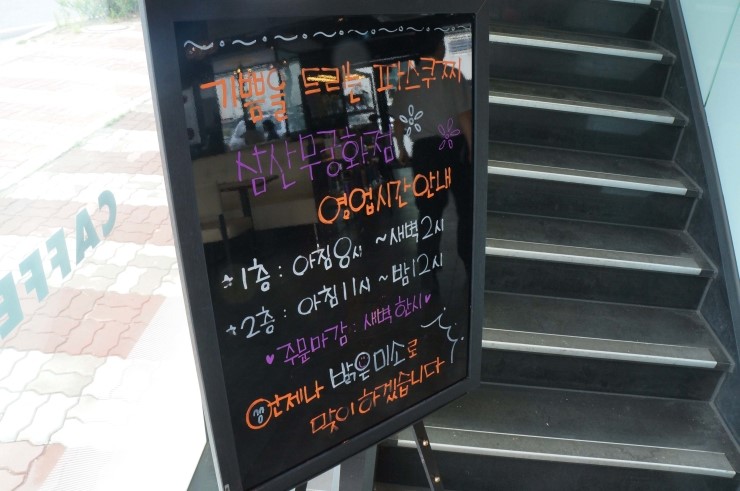 기쁨을 드리는 파스쿠찌
삼산무궁화점
영업시간안내
*1층 : 아침8시 ~새벽2시
*2층 : 아침11시~밤12시
♥주문마감 : 새벽한시♥
언제나 밝은미소로
맞이하겠습니다
CAFFE